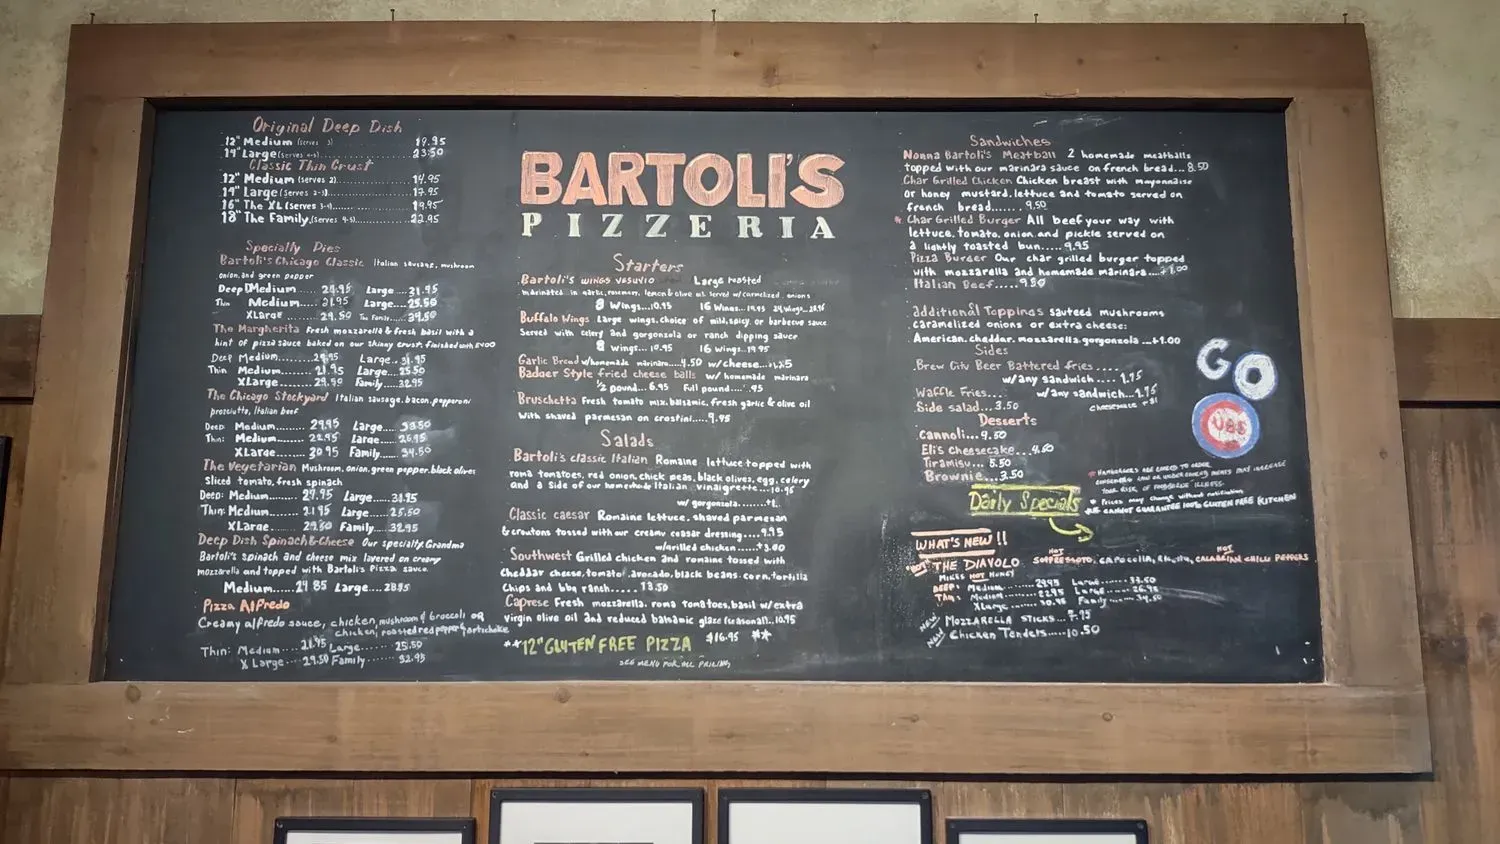 Original Deep Dish
12" Medium (serves 3) 19.95
14" Large (serves 4-5) 23.50
Classic Thin Crust
12" Medium (serves 2) 14.95
14" Large (serves 2-3) 17.95
16" The XL (serves 3-4) 19.95
18" The Family (serves 4-5) 22.95
Specialty Pies
Bartoli's Chicago Classic Italian sausage, mushroom
onion, and green pepper
Deep Medium 24.95 Large 31.95
Thin Medium 21.95 Large 25.50
XLarge 29.50 The Family
The Margherita Fresh mozzarella & fresh basil with a
hint of pizza sauce baked on our skinny crust; finished with EVOO
Deep Medium Large 31.95
Thin Medium 21.95 Large 25.50
XLarge 29.50 Family 32.95
The Chicago Stockyard Italian sausage, bacon, pepperoni
prosciutto, Italian beef
Deep: Medium 29.95 Large 33.50
Thin: Medium 22.95 Large 26.95
XLarge 30.95 Family 34.50
The Vegetarian Mushroom, onion, green pepper, black olives
Sliced tomato, fresh spinach
Deep: Medium 27.95 Large 31.95
Thin: Medium 21.95 Large 25.50
XLarge 29.50 Family 32.95
Deep Dish Spinach & Cheese Our specialty. Grandma
Bartoli's spinach and cheese mix layered on creamy
mozzarella and topped with Bartoli's Pizza sauce.
Medium Large
Pizza Alfredo
Creamy alfredo sauce, chicken, mushroom & broccoli OR
chicken, roasted red pepper & artichoke
Thin: Medium 21.95 Large 25.50
X Large 29.50 Family 32.95
BARTOLI'S
PIZZERIA
Starters
Bartoli's WINGS VESUVIO Large roasted
marinated in garlic, rosemary, lemon & olive oil. Served w/ carmelized onions
8 Wings...10.95 16 Wings...19.95 24 Wings
Buffalo Wings Large wings, choice of mild, spicy, or barbecue sauce
Served with celery and gorgonzola or ranch dipping sauce
8 Wings...10.95 16 Wings 19.95
Garlic Bread w/ homemade marinara 4.50 w/ cheese
Badger Style fried cheese balls w/ homemade marinara
½ pound...6.95 Full pound
Bruschetta Fresh tomato mix, balsamic, fresh garlic & olive oil
with shaved parmesan on crostini....9.95
Salads
Bartoli's Classic Italian Romaine lettuce topped with
roma tomatoes, red onion, chick peas, black olives, egg, celery
and a side of our homemade Italian vinaigrette...10.95
w/ gorgonzola
Classic caesar Romaine lettuce, shaved parmesan
& croutons tossed with our creamy caesar dressing....9.95
w/ grilled chicken +3.00
Southwest Grilled chicken and romaine tossed with
Cheddar cheese, tomato, avocado, black beans, corn, tortilla
Chips and bbq ranch.....13.50
Caprese Fresh mozzarella, roma tomatoes, basil w/ extra
virgin olive oil and reduced balsamic glaze (seasonal)..10.95
**12" GLUTEN FREE PIZZA $16.95 **
SEE MENU FOR ALL PRICING
Sandwiches
Nonna Bartoli's Meatball 2 homemade meatballs
topped with our marinara sauce on french bread...8.50
Char Grilled Chicken Chicken breast with mayonnaise
or honey mustard, lettuce and tomato served on
french bread.......9.50
* Char Grilled Burger All beef your way with
lettuce, tomato, onion, and pickle served on
a lightly toasted bun.....9.95
Pizza Burger Our char grilled burger topped
with mozzarella and homemade marinara
Italian Beef.....9.50
additional Toppings sauteed mushrooms
caramelized onions or extra cheese:
American, cheddar, mozzarella, gorgonzola...+1.00
Sides
Brew City Beer Battered fries
w/ any sandwich....1.75
Waffle Fries... w/ any sandwich...1.75
cheesesauce + $1
Side salad...3.50
Desserts
Cannoli...4.50
Eli's cheesecake...4.50
Tiramisu...5.50
Brownie...3.50
GO
UBS
* HAMBURGERS ARE COOKED TO ORDER
CONSUMING RAW OR UNDERCOOKED MEATS MAY INCREASE
YOUR RISK OF FOODBORNE ILLNESS.
* Prices may change without notification
** CANNOT GUARANTEE 100% GLUTEN FREE KITCHEN
Daily Specials
WHAT'S NEW!!
"HOT" THE DIAVOLO HOT SOPPRESSATO, CAPOCOLLA, HOT CALABRIAN CHILI PEPPERS
MIKES HOT HONEY
DEEP: Medium 29.95 Large 33.50
Thin: Medium 22.95 Large 26.95
XLarge 30.95 Family 34.50
NEW MOZZARELLA STICKS...7.95
NEW Chicken Tenders....10.50